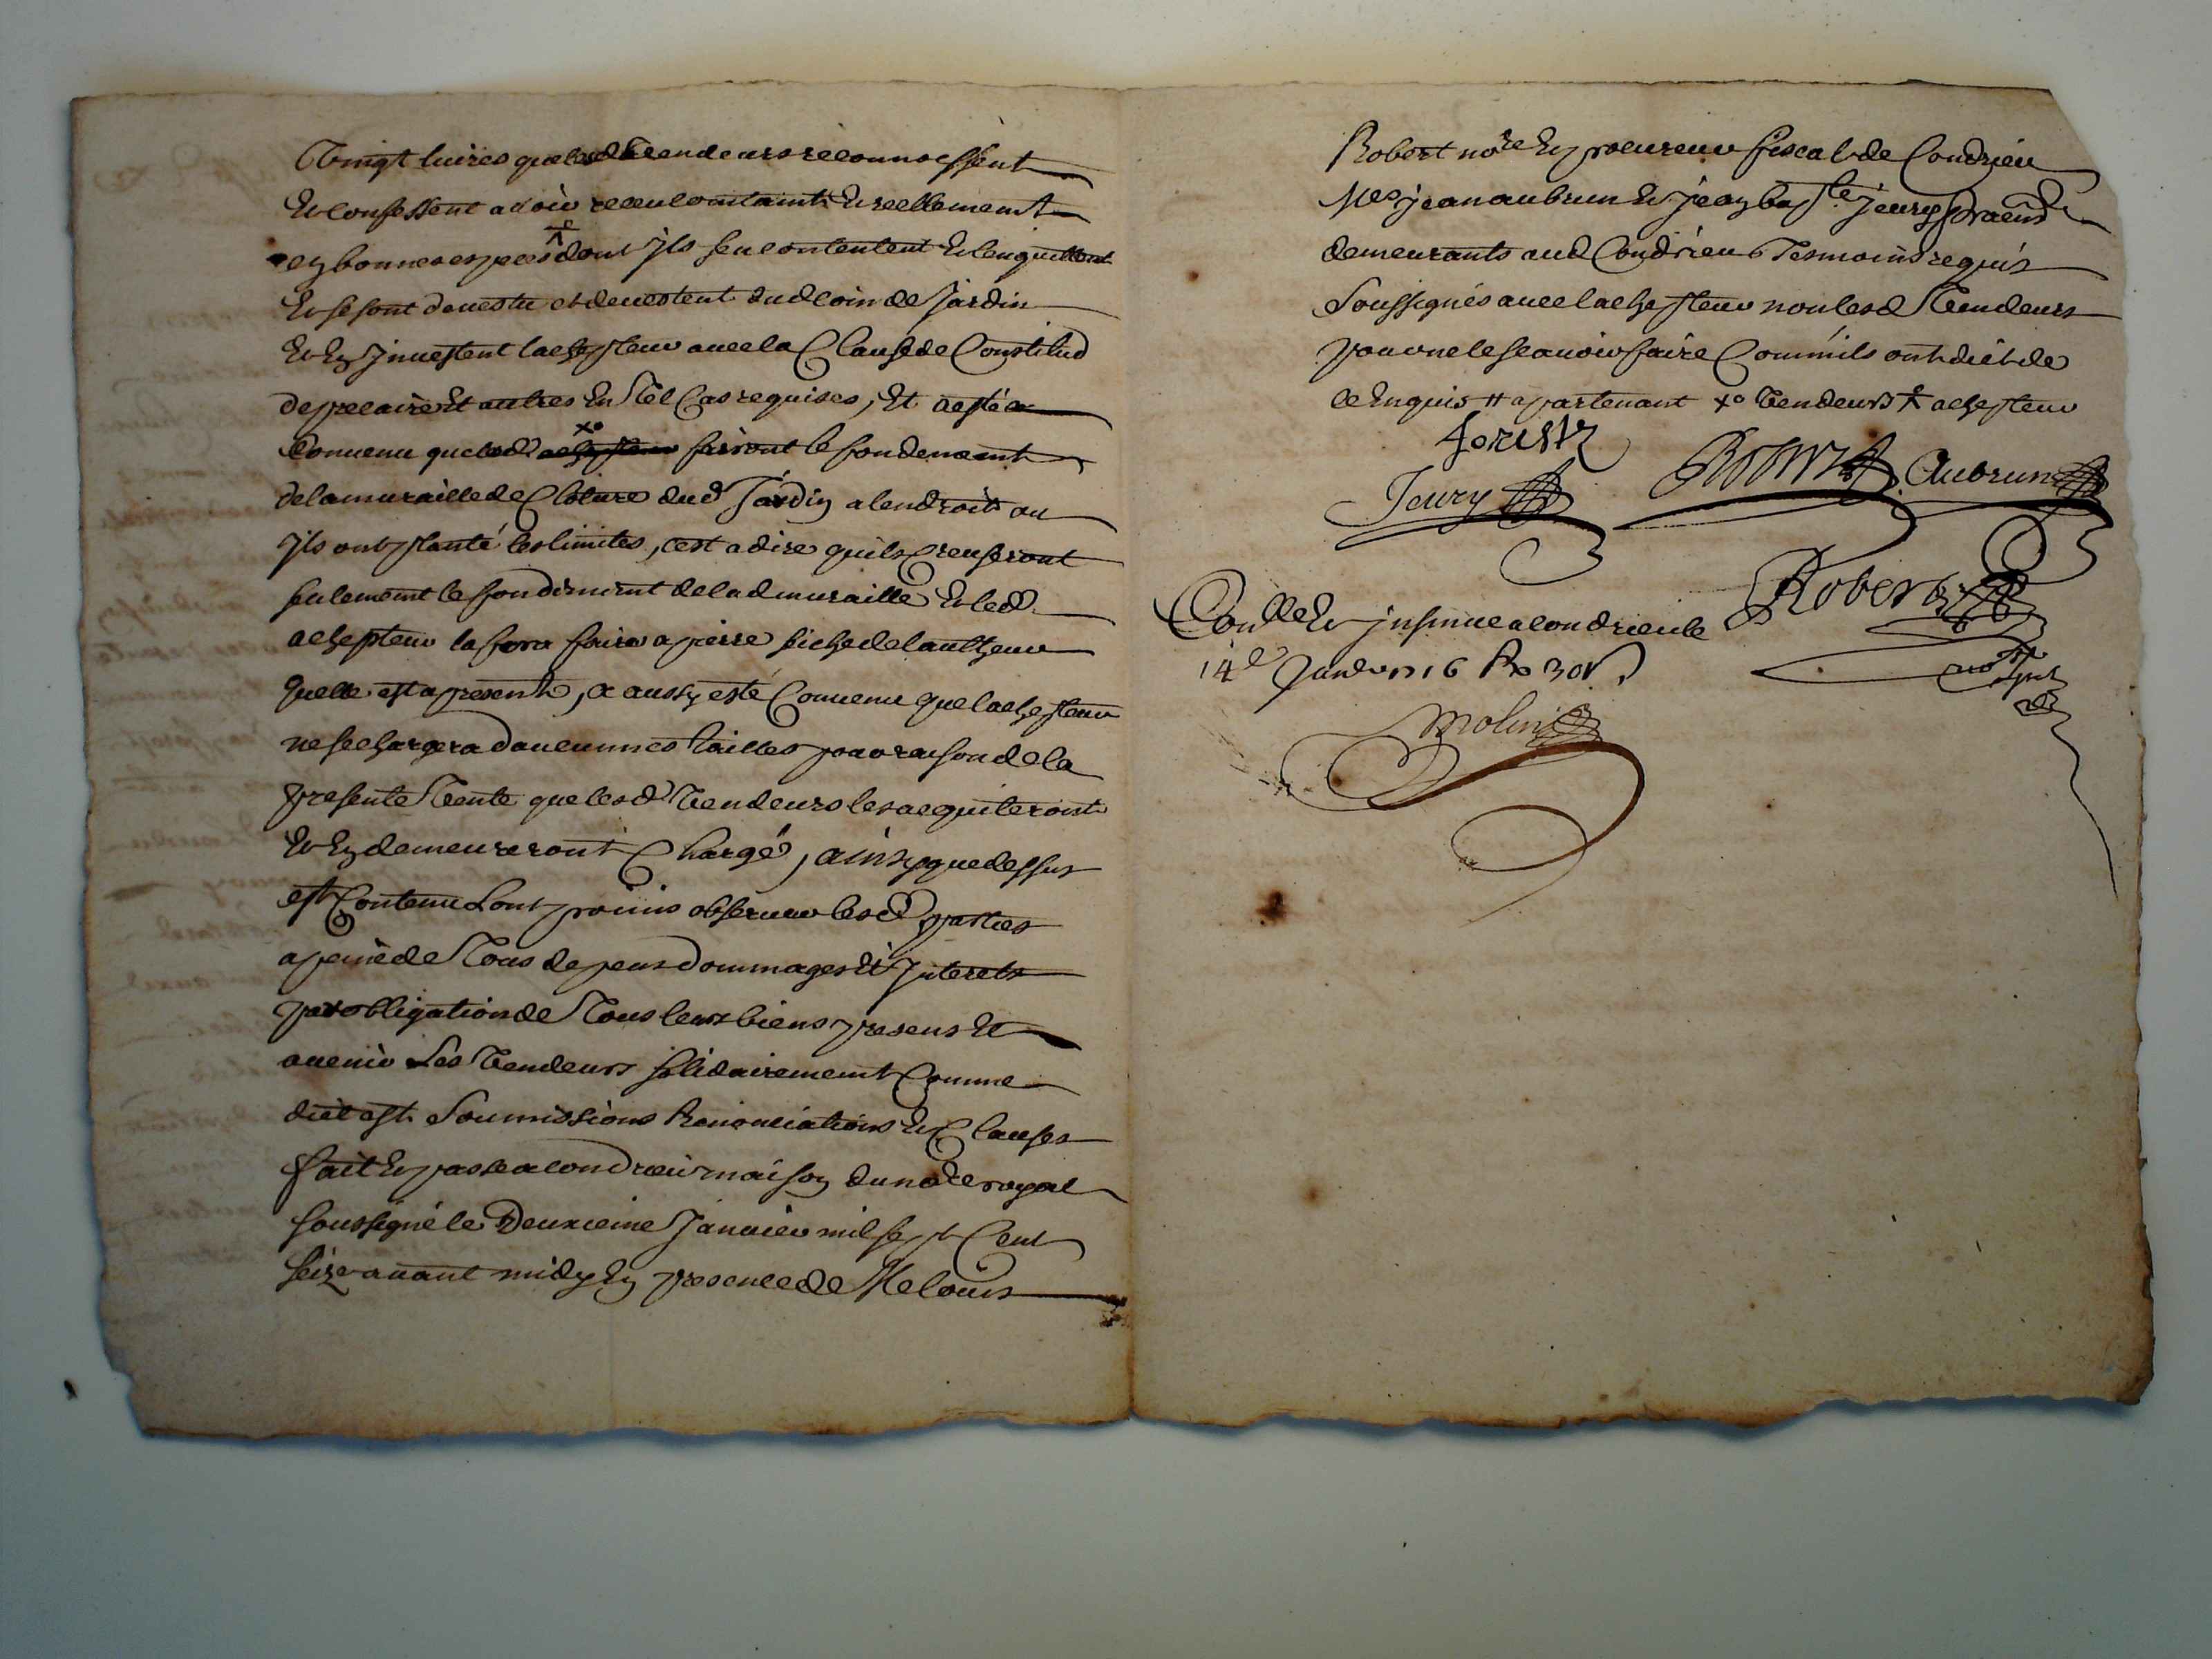 Vingt livres que lesd Vendeurs reconnoessent
Et confessent avoir receu containt Et reellement
en bonnes especes dont Ils sen contentent Et lenquittent
Et se sont devestu et devestent dud coin de Jardin
Et En Jnvestent lachepteur avec la Clause de Constitud
de precaire Et autres En Tel Cas requises, Et a esté
Convenu que lesd xo fairont le fondement
de la muraille de Cloture dud Jardin a lendroit ou
Ils ont planté les limites, cest a dire quils Creuseront
seulement le fondement de lad muraille Et led
achepteur la fera faire a pierre siche de laultheur
quelle est a present, a aussy esté Convenu que lachepteur
ne se chargera daucunnes tailles pour raison de la
presente Vente que lesd Vendeurs les acquiteront
Et En demeureront Chargé, ainsy que dessus
est Contenu Lont promis observer lesd parties
a peine de Tous depens dommages Et Interets
par obligation de Tous leurs biens presens Et
avenir Les Vendeurs solidairement Comme
diet est Soumissions Renonciations Et Clauses
fait Et passé a Condrieu maison du nore royal
soussigné le Deuxieme Janvier mil sept Cent
seize avant midy En presence de Me louis
Robert nore Et procureur fiscal de Condrieu
Mes jean aubrun Et jean bapte jeury praticiens
demeurants aud Condrieu Tesmoins requis
Soussignés avec lachepteur non lesd Vendeurs
pour ne le scavoir faire Comm'ils ont diet de
ce Enquis # apartenant xo Vendeurs achepteur
forest
Jeury Robert Aubrun
Robert
Conllé Et insinué a Condrieu le
14e Janver 1716 R 30s
nore
molin